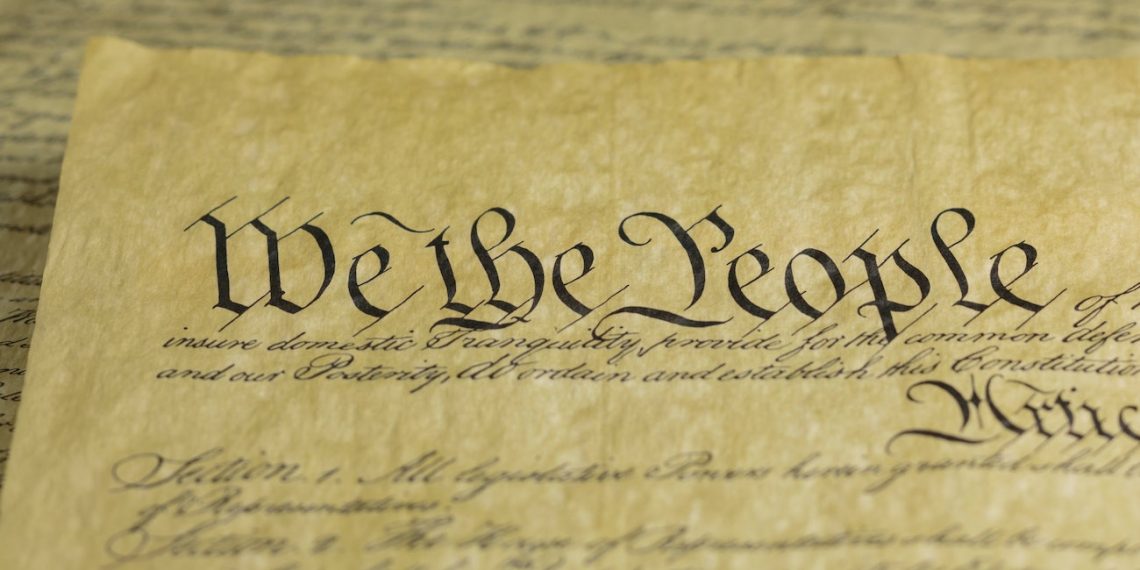 We the People of
insure domestic Tranquility, provide for the common defen
and our Posterity, do ordain and establish this Constitutio
Artic
Section. 1. All legislative Powers herein granted shall
of Representatives.
Section. 2. The House of Representatives shall be